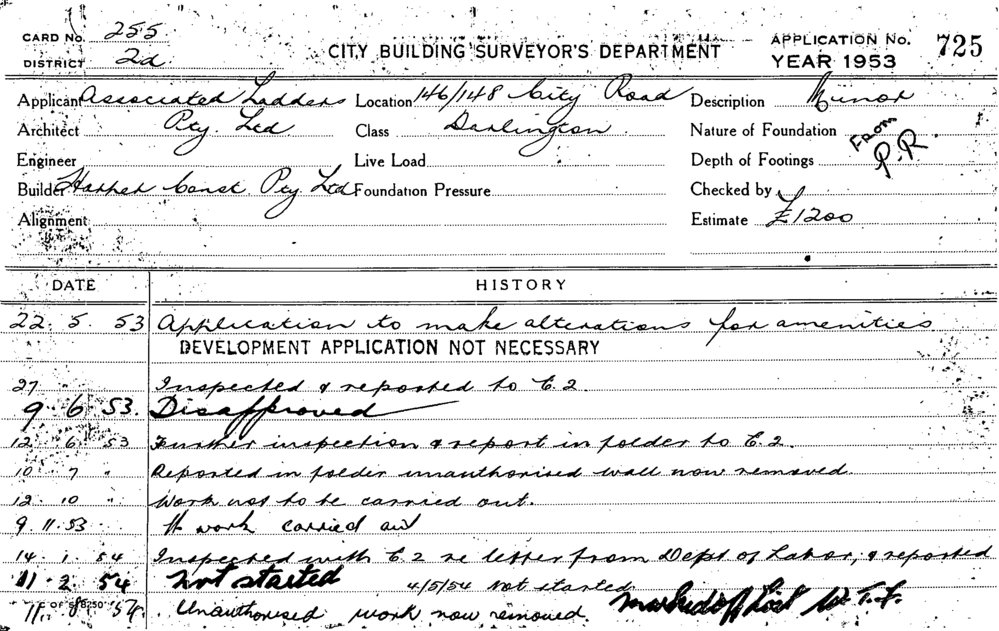 CARD No. 255
DISTRICT 2d
CITY BUILDING SURVEYOR'S DEPARTMENT
APPLICATION No. 725
YEAR 1953
Applicant Associated Ladders Location 146/148 City Road Description Minor
Architect Pty. Ltd Class Darlington Nature of Foundation From
Engineer Live Load Depth of Footings P.R.
Builder Const Pty Ltd Foundation Pressure Checked by
Alignment Estimate £1200
DATE HISTORY
22. 5. 53 Application to make alterations for amenities
DEVELOPMENT APPLICATION NOT NECESSARY
27 " " Inspected & reported to E.2.
9. 6. 53. Disapproved
12. 6. 53 Further inspection & report in folder to E.2.
10 7 " Reported in folder unauthorised wall now removed
12. 10 " Work not to be carried out.
9. 11. 53 work carried
14. 1. 54 Inspected with E.2 re letter from Dept of Labor, & reported
11. 2. 54 Not started 4/5/54 Not started
54. Unauthorised work now removed. Marked off List W.T.F.